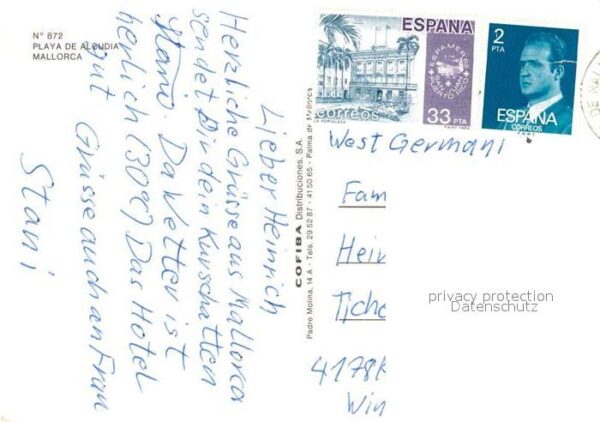 N° 872
PLAYA DE ALCUDIA
MALLORCA
Lieber Heinrich
Herzliche Grüsse aus Mallorca
sendet Dir dein Kurschatten
Stani. Da Wetter ist
herlich (30°C) Das Hotel
gut Grüsse auch an Frau
Stani
COFIBA Distribuciones, S.A.
Padre Molina, 14 A - Tels. 29 52 87 - 41 50 65 - Palma de Mallorca
ESPAÑA
ESPAMER 82
SAN JUAN
PUERTO RICO
correos
33 PTA
LA FORTALEZA
2
PTA
ESPAÑA
CORREOS
West Germani
Fam
Hein
Tiche
4178K
Win
privacy protection
Datenschutz